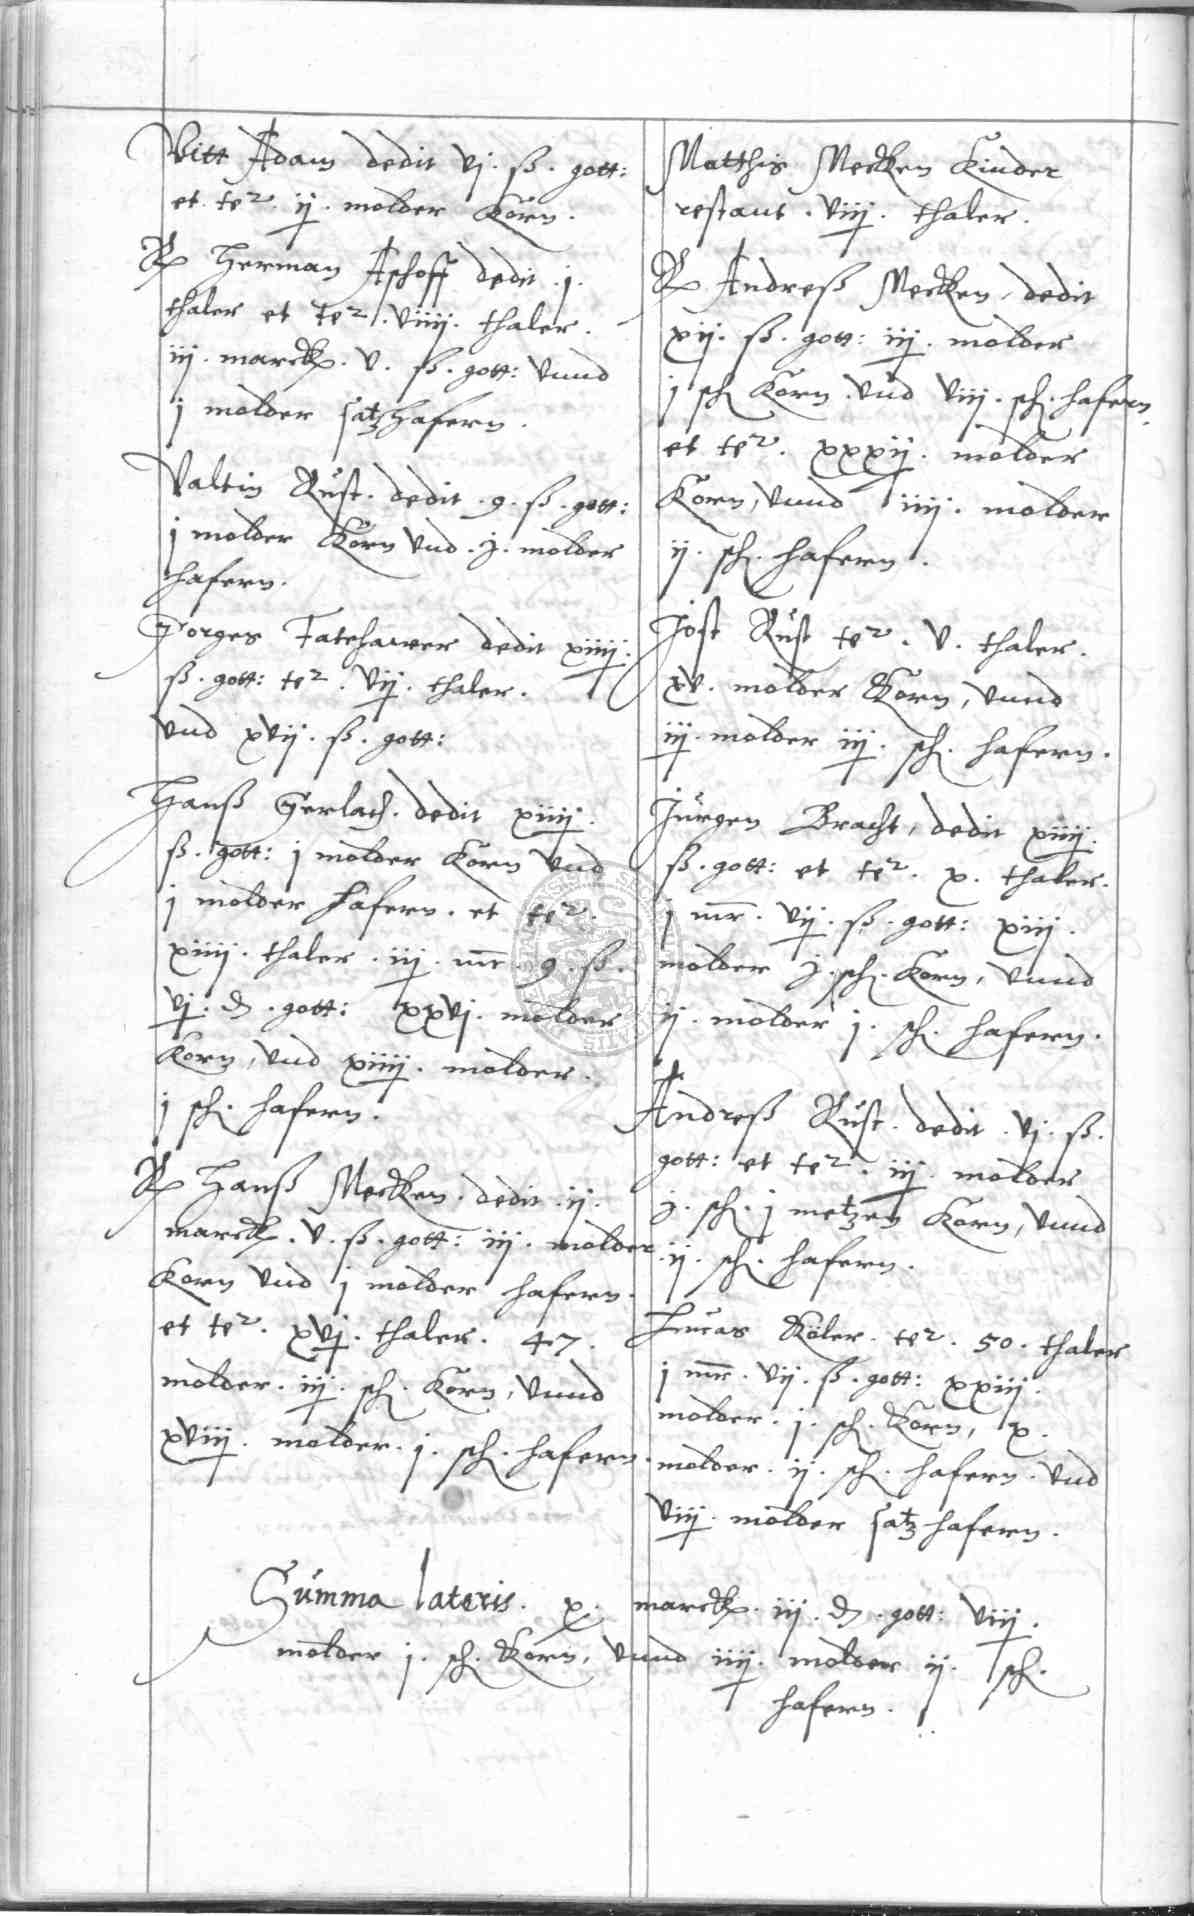 Vitt Adam dedit vj. ß. gott:
et ter. ij. molder Korn.
R Herman Aschoff dedit .j.
thaler et ter. viiij. thaler.
iij. marck. v. ß. gott: vnnd
j molder satzhafern.
Valtin Rüst. dedit .9. ß. gott:
j molder Korn vnd .j. molder
hafern.
Jorges Fatehawer dedit xiiij.
ß. gott: ter. vij. thaler.
vnd xvij. ß. gott:
Hanß Gerlach. dedit xiiij.
ß. gott: j molder Korn vnd
j molder hafern. et ter.
xiiij. thaler. iij. mr. 9. ß.
vj. d. gott: xxvj. molder
Korn, vnd xiiij. molder.
j sch. hafern.
R Hanß Mecken. dedit .ij.
marck. v. ß. gott: iij. molder
Korn vnd j molder hafern.
et ter. xvj. thaler. 47.
molder. iij. sch. Korn, vnnd
xviij. molder. j. sch. hafern.
Matthis Mecken Kinder
restant. viij. thaler.
R Andreß Mecken, dedit
xij. ß. gott: iij. molder
j sch Korn. vnd viij. sch. hafern.
et ter. xxxij. molder
Korn, vnnd iiij. molder
ij. sch. hafern.
Jost Rüst ter. v. thaler.
xv. molder Korn, vnnd
iij. molder iij. sch. hafern.
Jürgen Bracht, dedit xiiij.
ß. gott: et ter. x. thaler.
j mr. vij. ß. gott: xiij.
molder j. sch. Korn, vnnd
ij. molder j. sch. hafern.
Andreß Rüst. dedit. vj. ß.
gott: et ter. iij. molder
j. sch. j metzen Korn, vnnd
ij. sch. hafern.
Lucas Köler. ter. 50. thaler
j mr. vij. ß. gott: xxiij.
molder. j. sch. Korn, x.
molder. ij. sch. hafern. vnd
viij. molder satzhafern.
Summa lateris. x. marck. iij. d. gott: viij.
molder j. sch. Korn, vnnd iiij. molder ij. sch.
hafern.